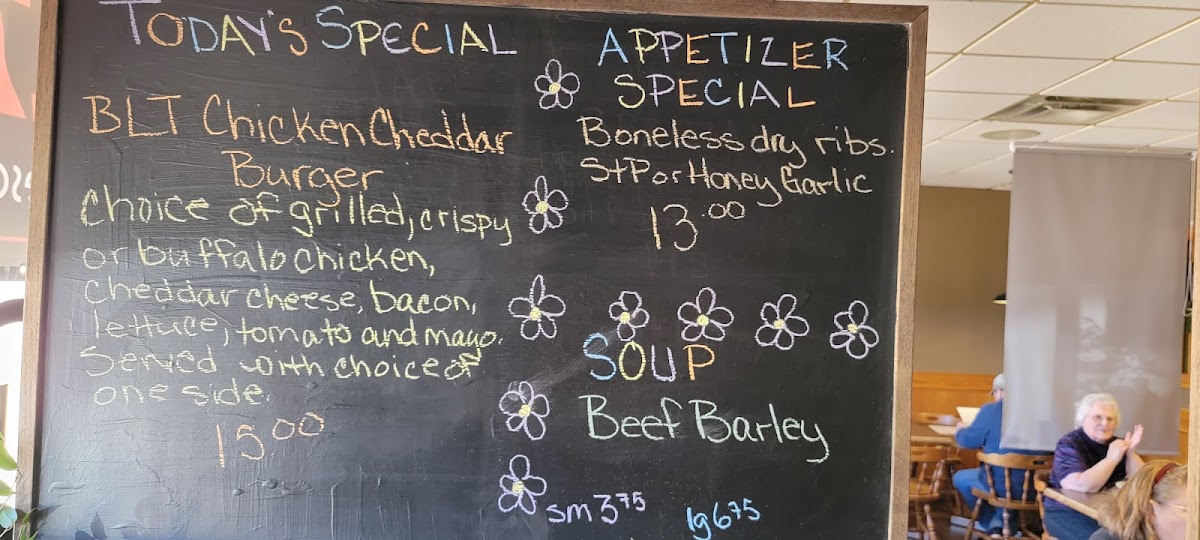 TODAY'S SPECIAL
BLT Chicken Cheddar
Burger
Choice of grilled, crispy
or buffalo chicken,
cheddar cheese, bacon,
lettuce, tomato and mayo.
Served with choice of
one side.
15.00
APPETIZER
SPECIAL
Boneless dry ribs.
S+P or Honey Garlic
13.00
SOUP
Beef Barley
sm 3 75 lg 6 75